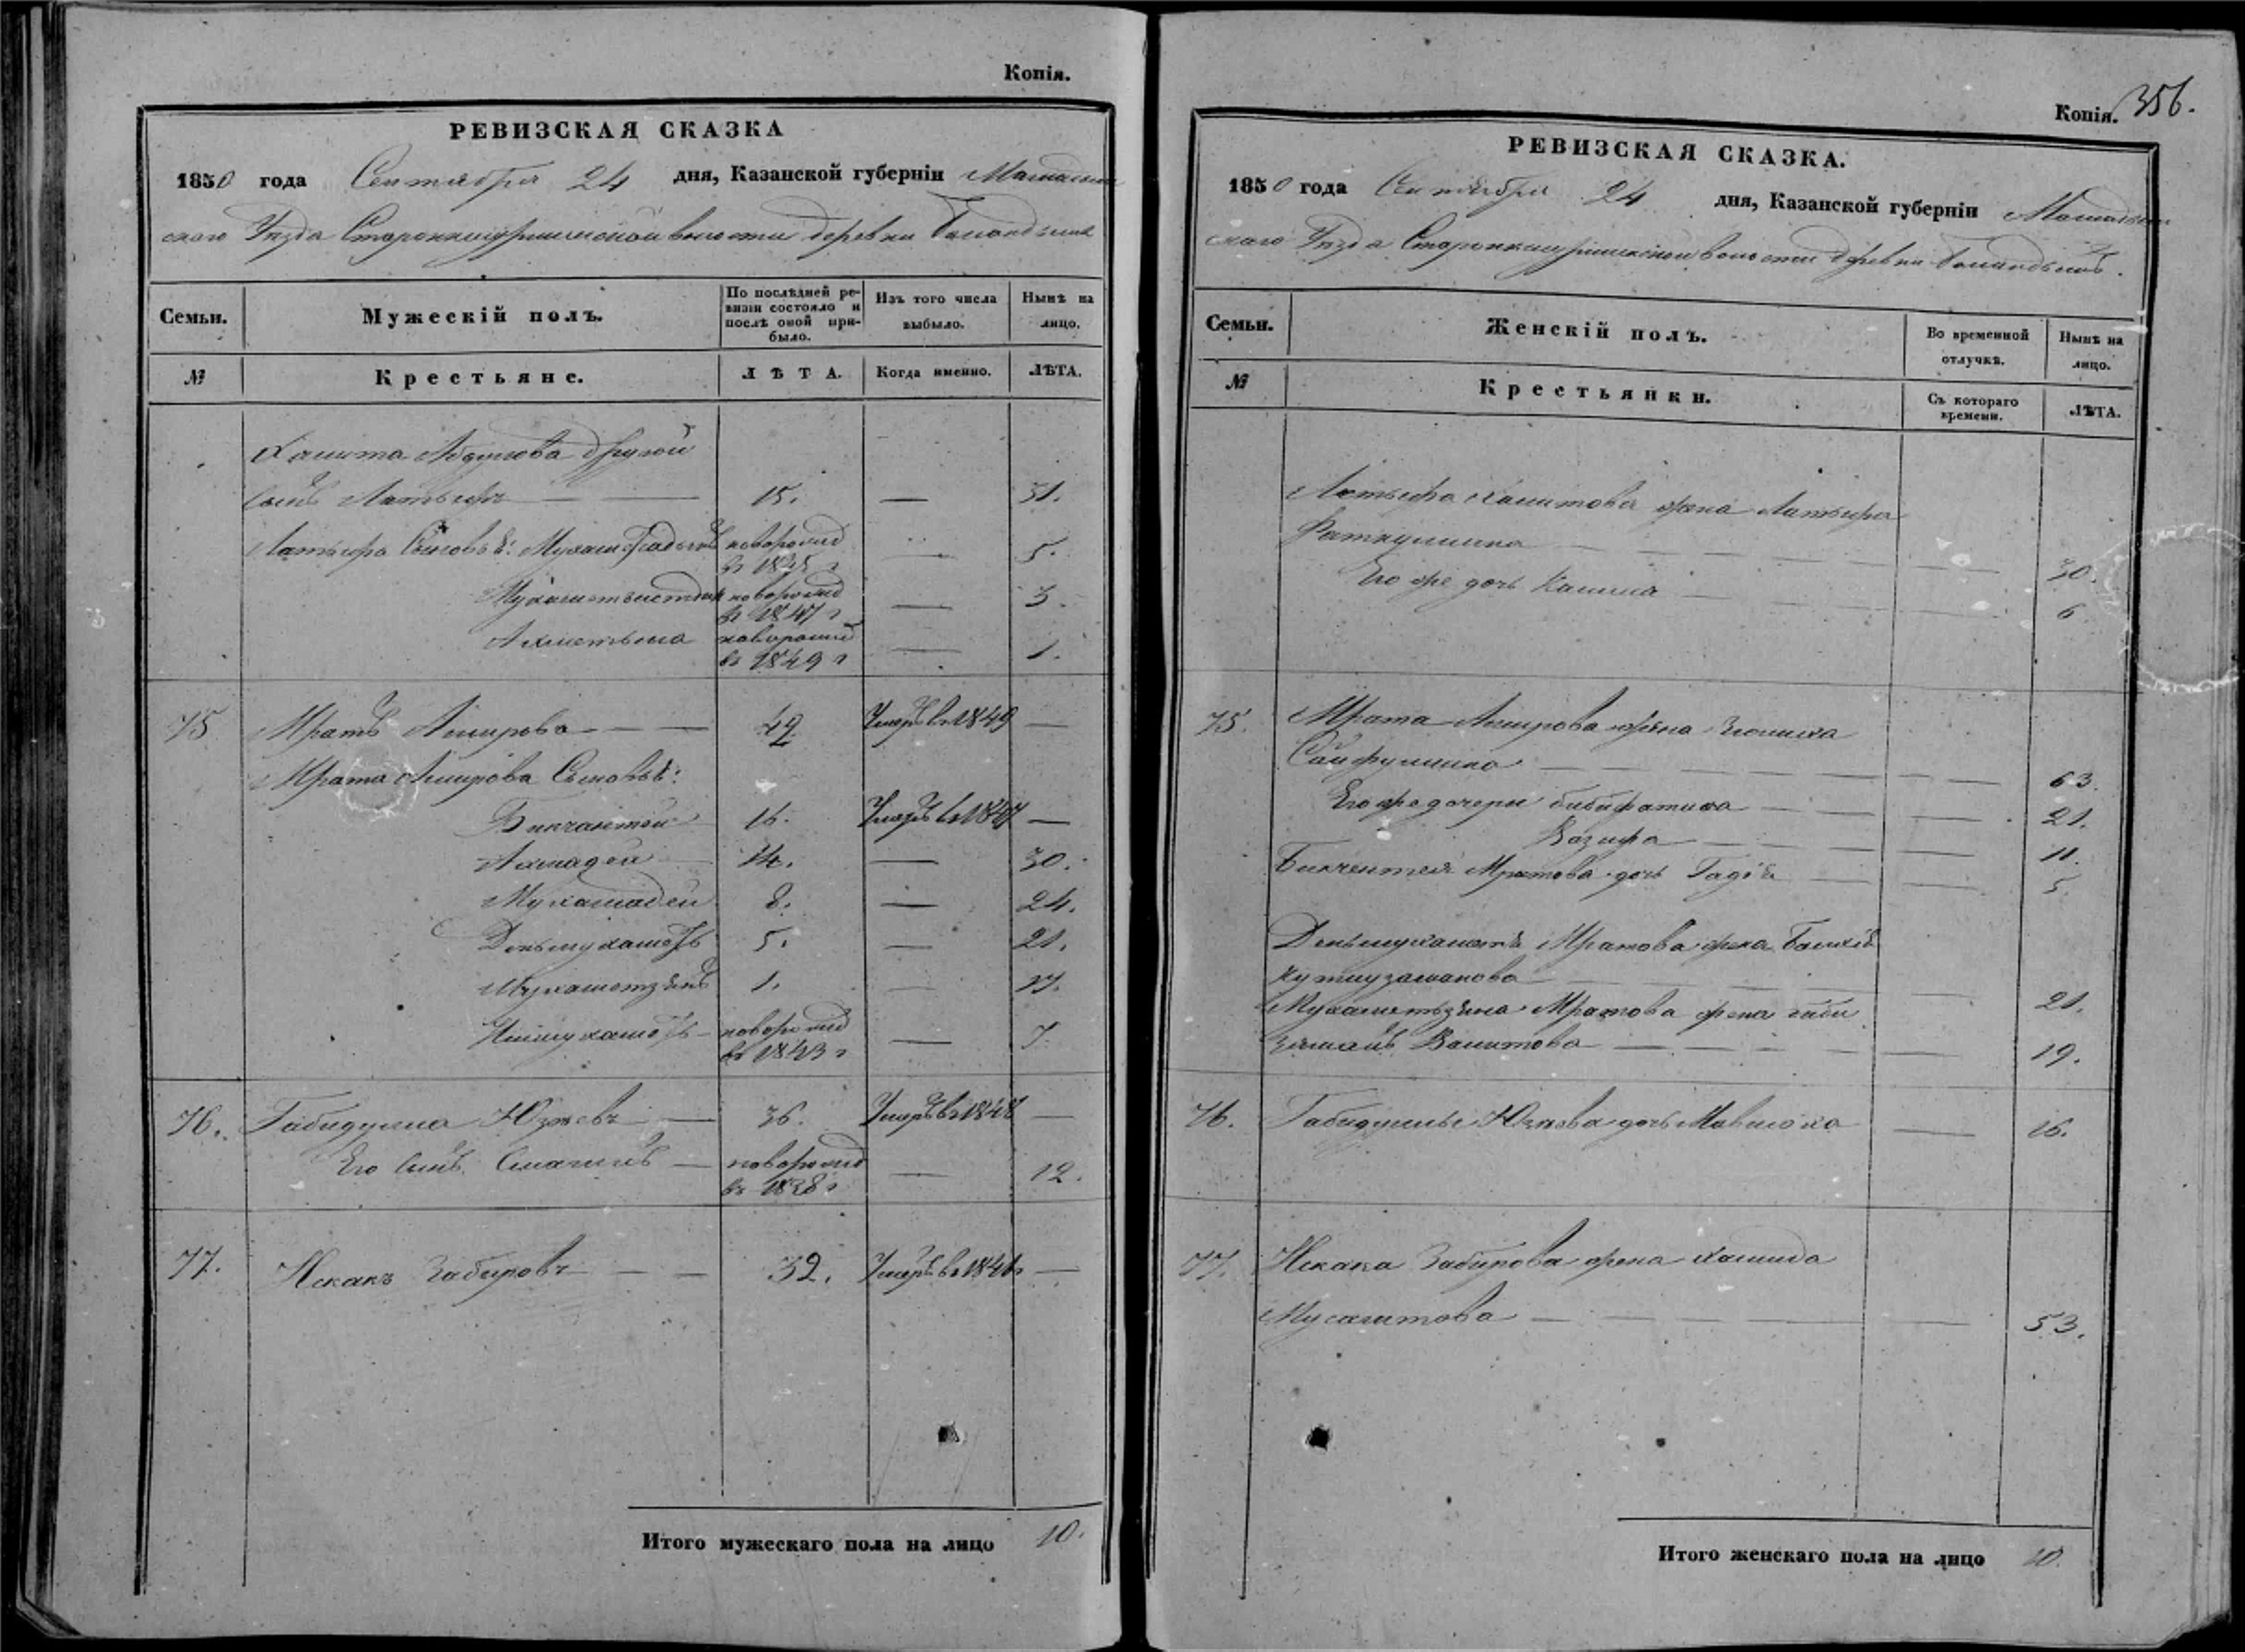 Копія.
РЕВИЗСКАЯ СКАЗКА
1850 года Сентября 24 дня, Казанской губерніи Мамадыш
скаго Уѣзда волости деревни
Семьи.
Мужескій полъ.
По послѣдней ре-
визіи состояло и
послѣ оной при-
было.
Изъ того числа
выбыло.
Нынѣ на
лицо.
№
Крестьяне.
ЛѢТА.
Когда именно.
ЛѢТА.
Хамита другой
сынъ Латыфъ — — 15. — 31.
Латыфа Сыновья: новорожд
въ 1845 г — 5.
новорожд
въ 1847 г — 3.
Ахметьша новорожд
въ 1849 г — 1.
75 Мратъ Амирова — — 49 Умеръ въ 1849 —
Мрата Амирова Сыновья:
Бикчантей 16. Умеръ въ 1847 —
Ахмадей 14. — 30.
Мухамадей 8. — 24.
Деньмухаметь 5. — 21.
Мухаметзянъ 1. — 17.
новорожд
въ 1843 г — 7
76. Габидулла Юзеевъ — 36. Умеръ въ 1848 —
Его сынъ — новорожд
въ 1838 г — 12.
77. Искакъ Забировъ — — 32. Умеръ въ 1846 —
Итого мужескаго пола на лицо 10.
Копія. 356.
РЕВИЗСКАЯ СКАЗКА.
1850 года Сентября 24 дня, Казанской губерніи Мамадыш
скаго Уѣзда волости деревни
Семьи.
Женскій полъ.
Во временной
отлучкѣ.
Нынѣ на
лицо.
№
Крестьянки.
Съ котораго
времени.
ЛѢТА.
Латыфа Хамитова жена Латыфа
Фаткуллина — — 30.
Его же дочь Камила — — 6
75. Мрата Амирова жена
Сайфуллина — — 63.
Его же дочери Бибифатиха — — 21.
Вазифа — — 11.
Бикчентея Мратова дочь Гадія — — 5.
Деньмухаметя Мратова жена
Кутлузаманова — — 21.
Мухаметьзяна Мратова жена Биби
замалъ Валитова — — 19.
76. Габидуллы Юзеева дочь — 16.
77. Искака Забирова жена Хамида
— — 53.
Итого женскаго пола на лицо 10.